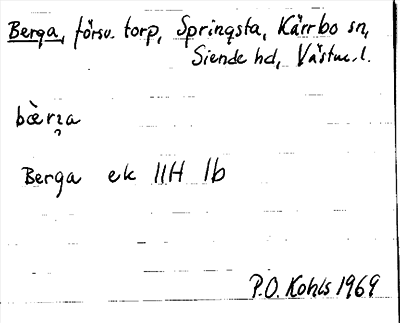 Berga, försv. torp, Springsta, Kärrbo sn,
Siende hd, Västm. l.
Berga ek 11H 1b
P.O. Kohls 1969